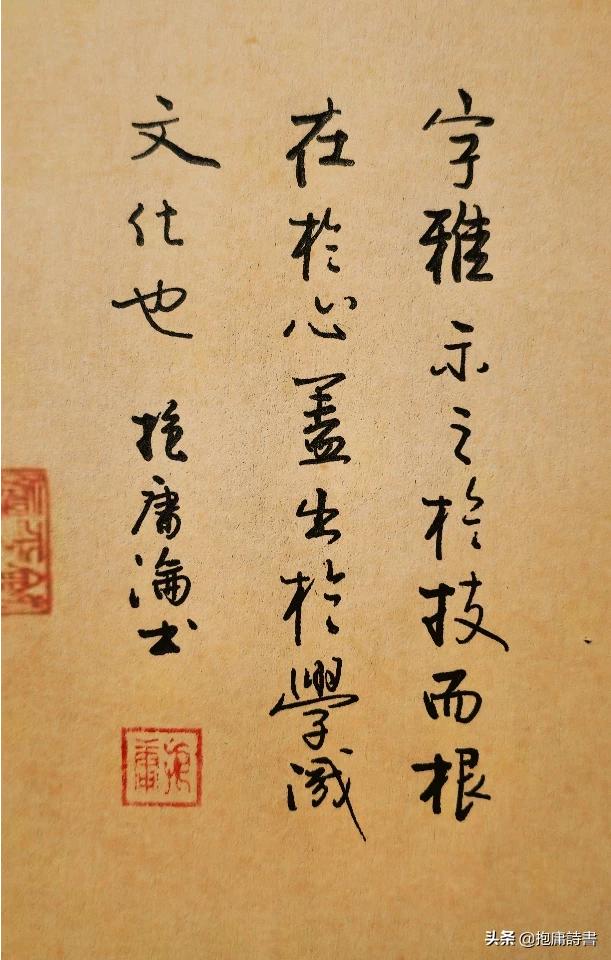 字雅示之於技而根
在於心蓋出於學識
文化也 抱庸淪书
抱庸
头条 @抱庸詩書